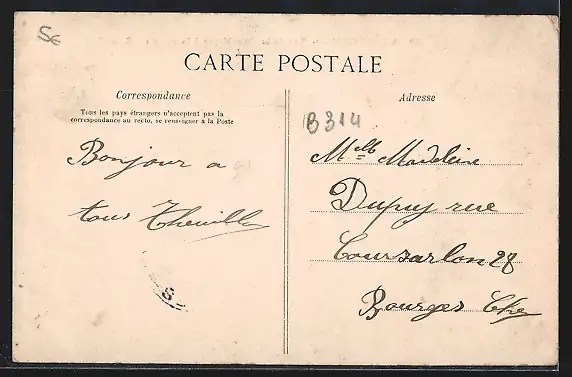 5€
CARTE POSTALE
Correspondance
Tous les pays étrangers n'acceptent pas la
correspondance au recto, se renseigner à la Poste
Bonjour a
tous
Adresse
B314
Melle Madeleine
Dupuy rue
Coursarlon 28
Bourges Cher